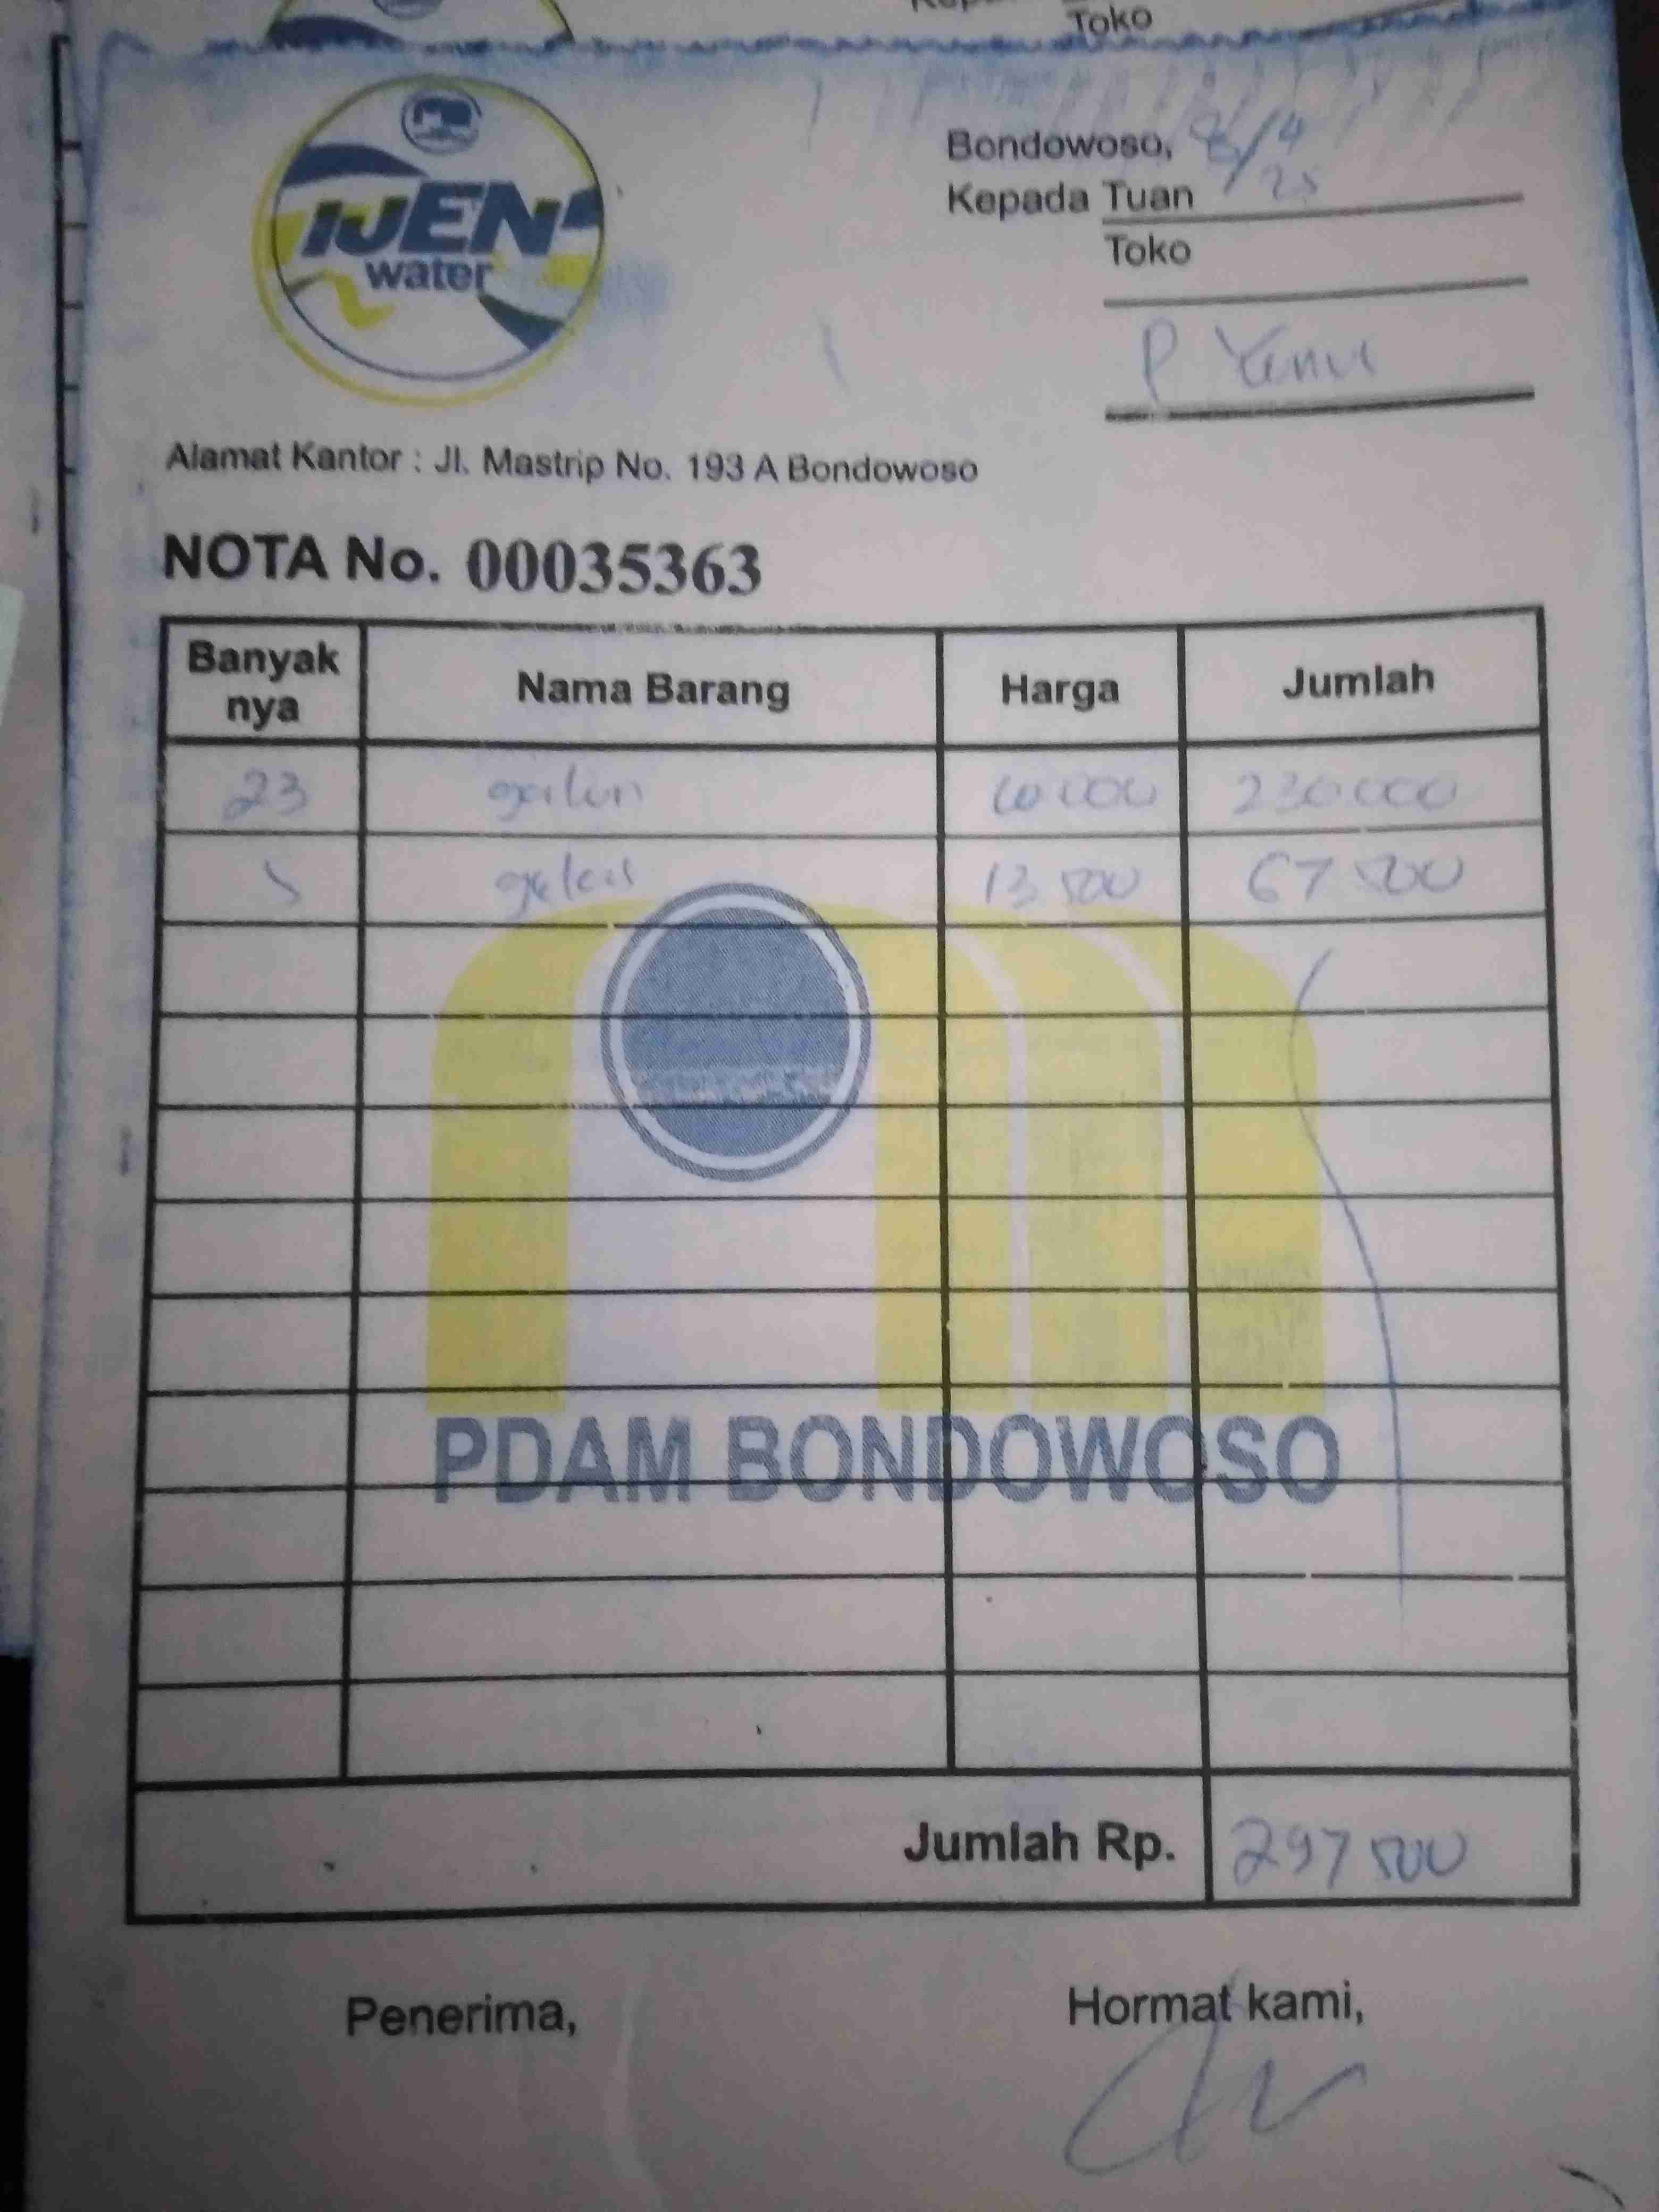 Toko
IJEN
water
Bondowoso, 8/4
25
Kepada Tuan
Toko
P
Alamat Kantor : Jl. Mastrip No. 193 A Bondowoso
NOTA No. 00035363
Banyak nya Nama Barang Harga Jumlah
23 galon 10 000 230 000
5 gelas 13 500 67 500
PDAM BONDOWOSO
Jumlah Rp. 297 500
Penerima, Hormat kami,